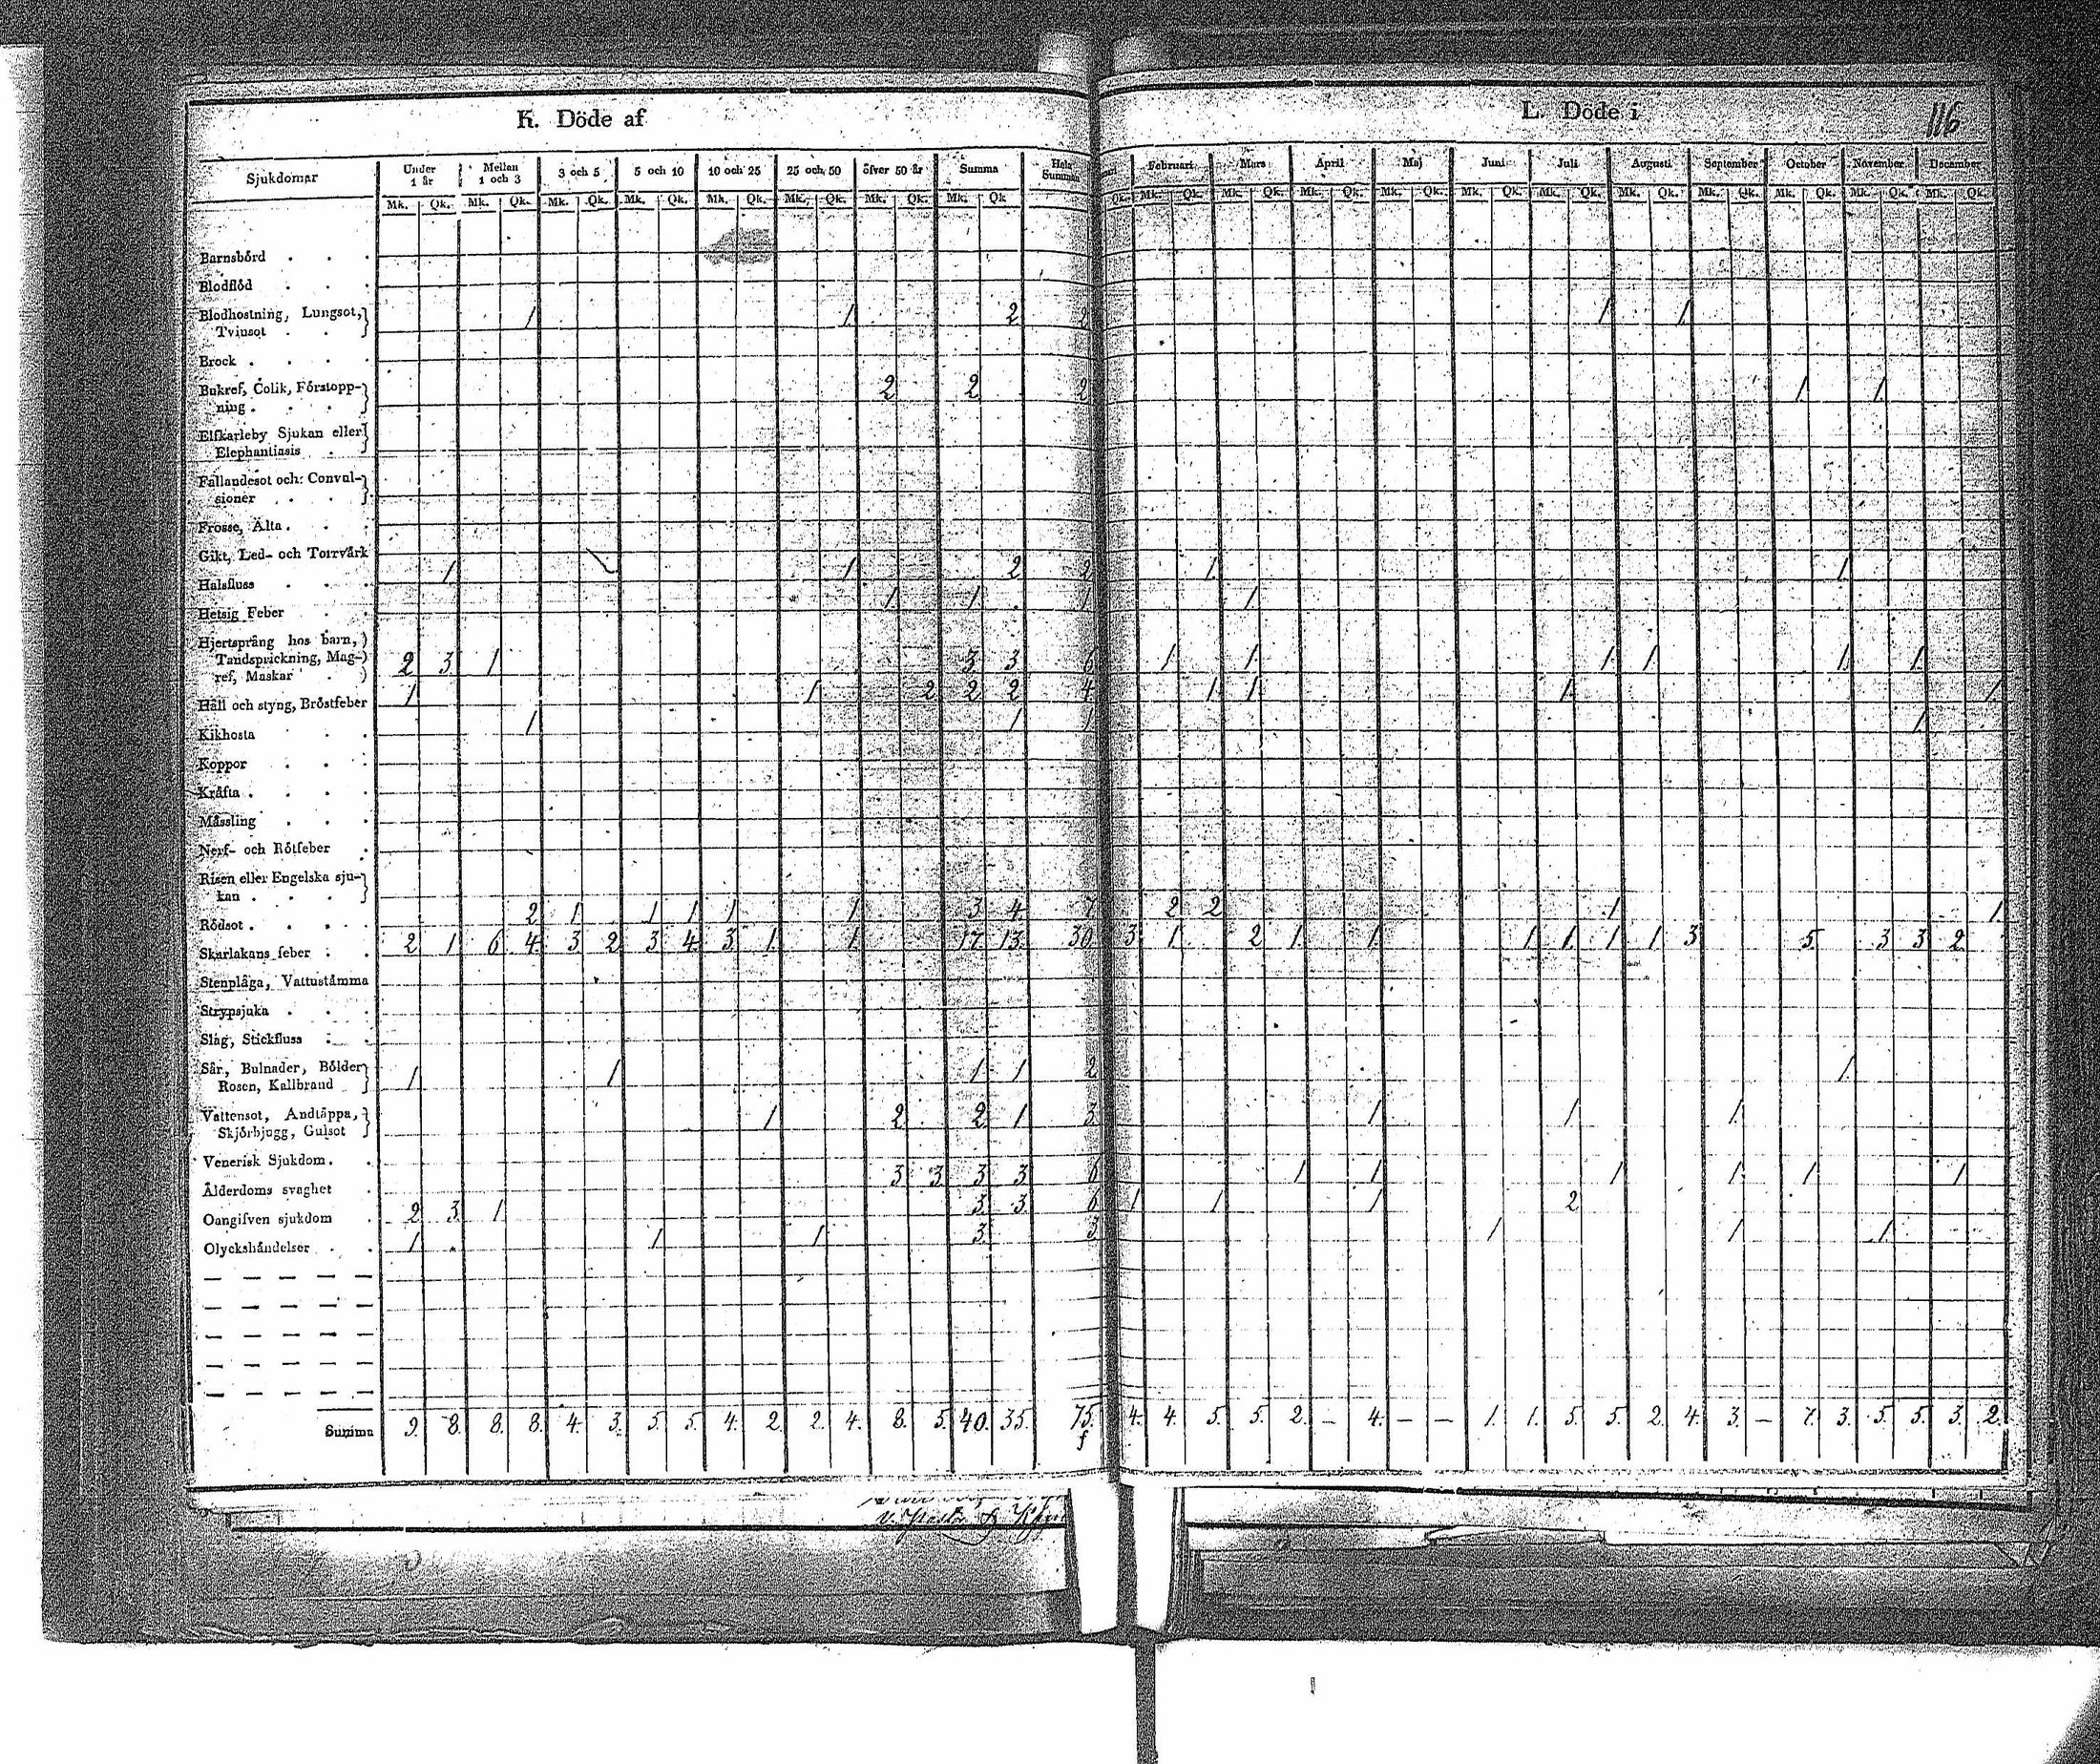 K. Döde af
L. Döde i
116
Sjukdomar
Under 1 år
Mellan 1 och 3
3 och 5
5 och 10
10 och 25
25 och 50
öfver 50 år
Summa
Hela Summan
Februari
Mars
April
Maj
Juni
Juli
Augusti
September
October
November
December
Mk. Qk. Mk. Qk. Mk. Qk. Mk. Qk. Mk. Qk. Mk. Qk. Mk. Qk. Mk. Qk
Qk. Mk. Qk. Mk. Qk. Mk. Qk. Mk. Qk. Mk. Qk. Mk. Qk. Mk. Qk. Mk. Qk. Mk. Qk. Mk. Qk. Mk. Qk.
Barnsbörd
Blodflöd
Blodhostning, Lungsot, 1 1 2 2 1 1
Tvinsot
Brock
Bukref, Colik, Förstopp- 2 2 2 1 1
ning
Elfkarleby Sjukan eller
Elephantiasis
Fallandesot och Convul-
sioner
Frosse, Älta
Gikt, Led- och Torrvärk
Halsfluss 1 1 2 2 1 1
Hetsig Feber 1 1 1 1
Hjertsprång hos barn,
Tandsprickning, Mag- 2 3 1 3 3 6 1 1 1 1 1 1
ref, Maskar
Håll och styng, Bröstfeber 1 1 2 2 2 4 1 1 1 1
Kikhosta 1 1 1 1
Koppor
Kräfta
Mässling
Nerf- och Rötfeber
Risen eller Engelska sju-
kan
Rödsot 2 1 1 1 1 1 3 4 7 2 2 1 1
Skarlakans feber 2 1 6 4 3 2 3 4 3 1 1 17 13 30 3 1 2 1 1 1 1 1 1 3 5 3 3 2
Stenplåga, Vattustämma
Strypsjuka
Slag, Stickfluss
Sår, Bulnader, Bölder
Rosen, Kallbrand 1 1 1 1 2 1
Vattensot, Andtäppa, 1 2 2 1 3 1 1 1
Skjörbjugg, Gulsot
Venerisk Sjukdom
Ålderdoms svaghet 3 3 3 3 6 1 1 1 1 1 1
Oangifven sjukdom 2 3 1 3 3 6 1 1 1 2
Olyckshändelser 1 1 1 3 3 1 1 1
Summa 9. 8. 8. 8. 4. 3. 5. 5. 4. 2. 2. 4. 8. 5. 40. 35. 75. 4. 4. 5. 5. 2. – 4. – – 1. 1. 5. 5. 2. 4. 3. – 7. 3. 5. 5. 3. 2.